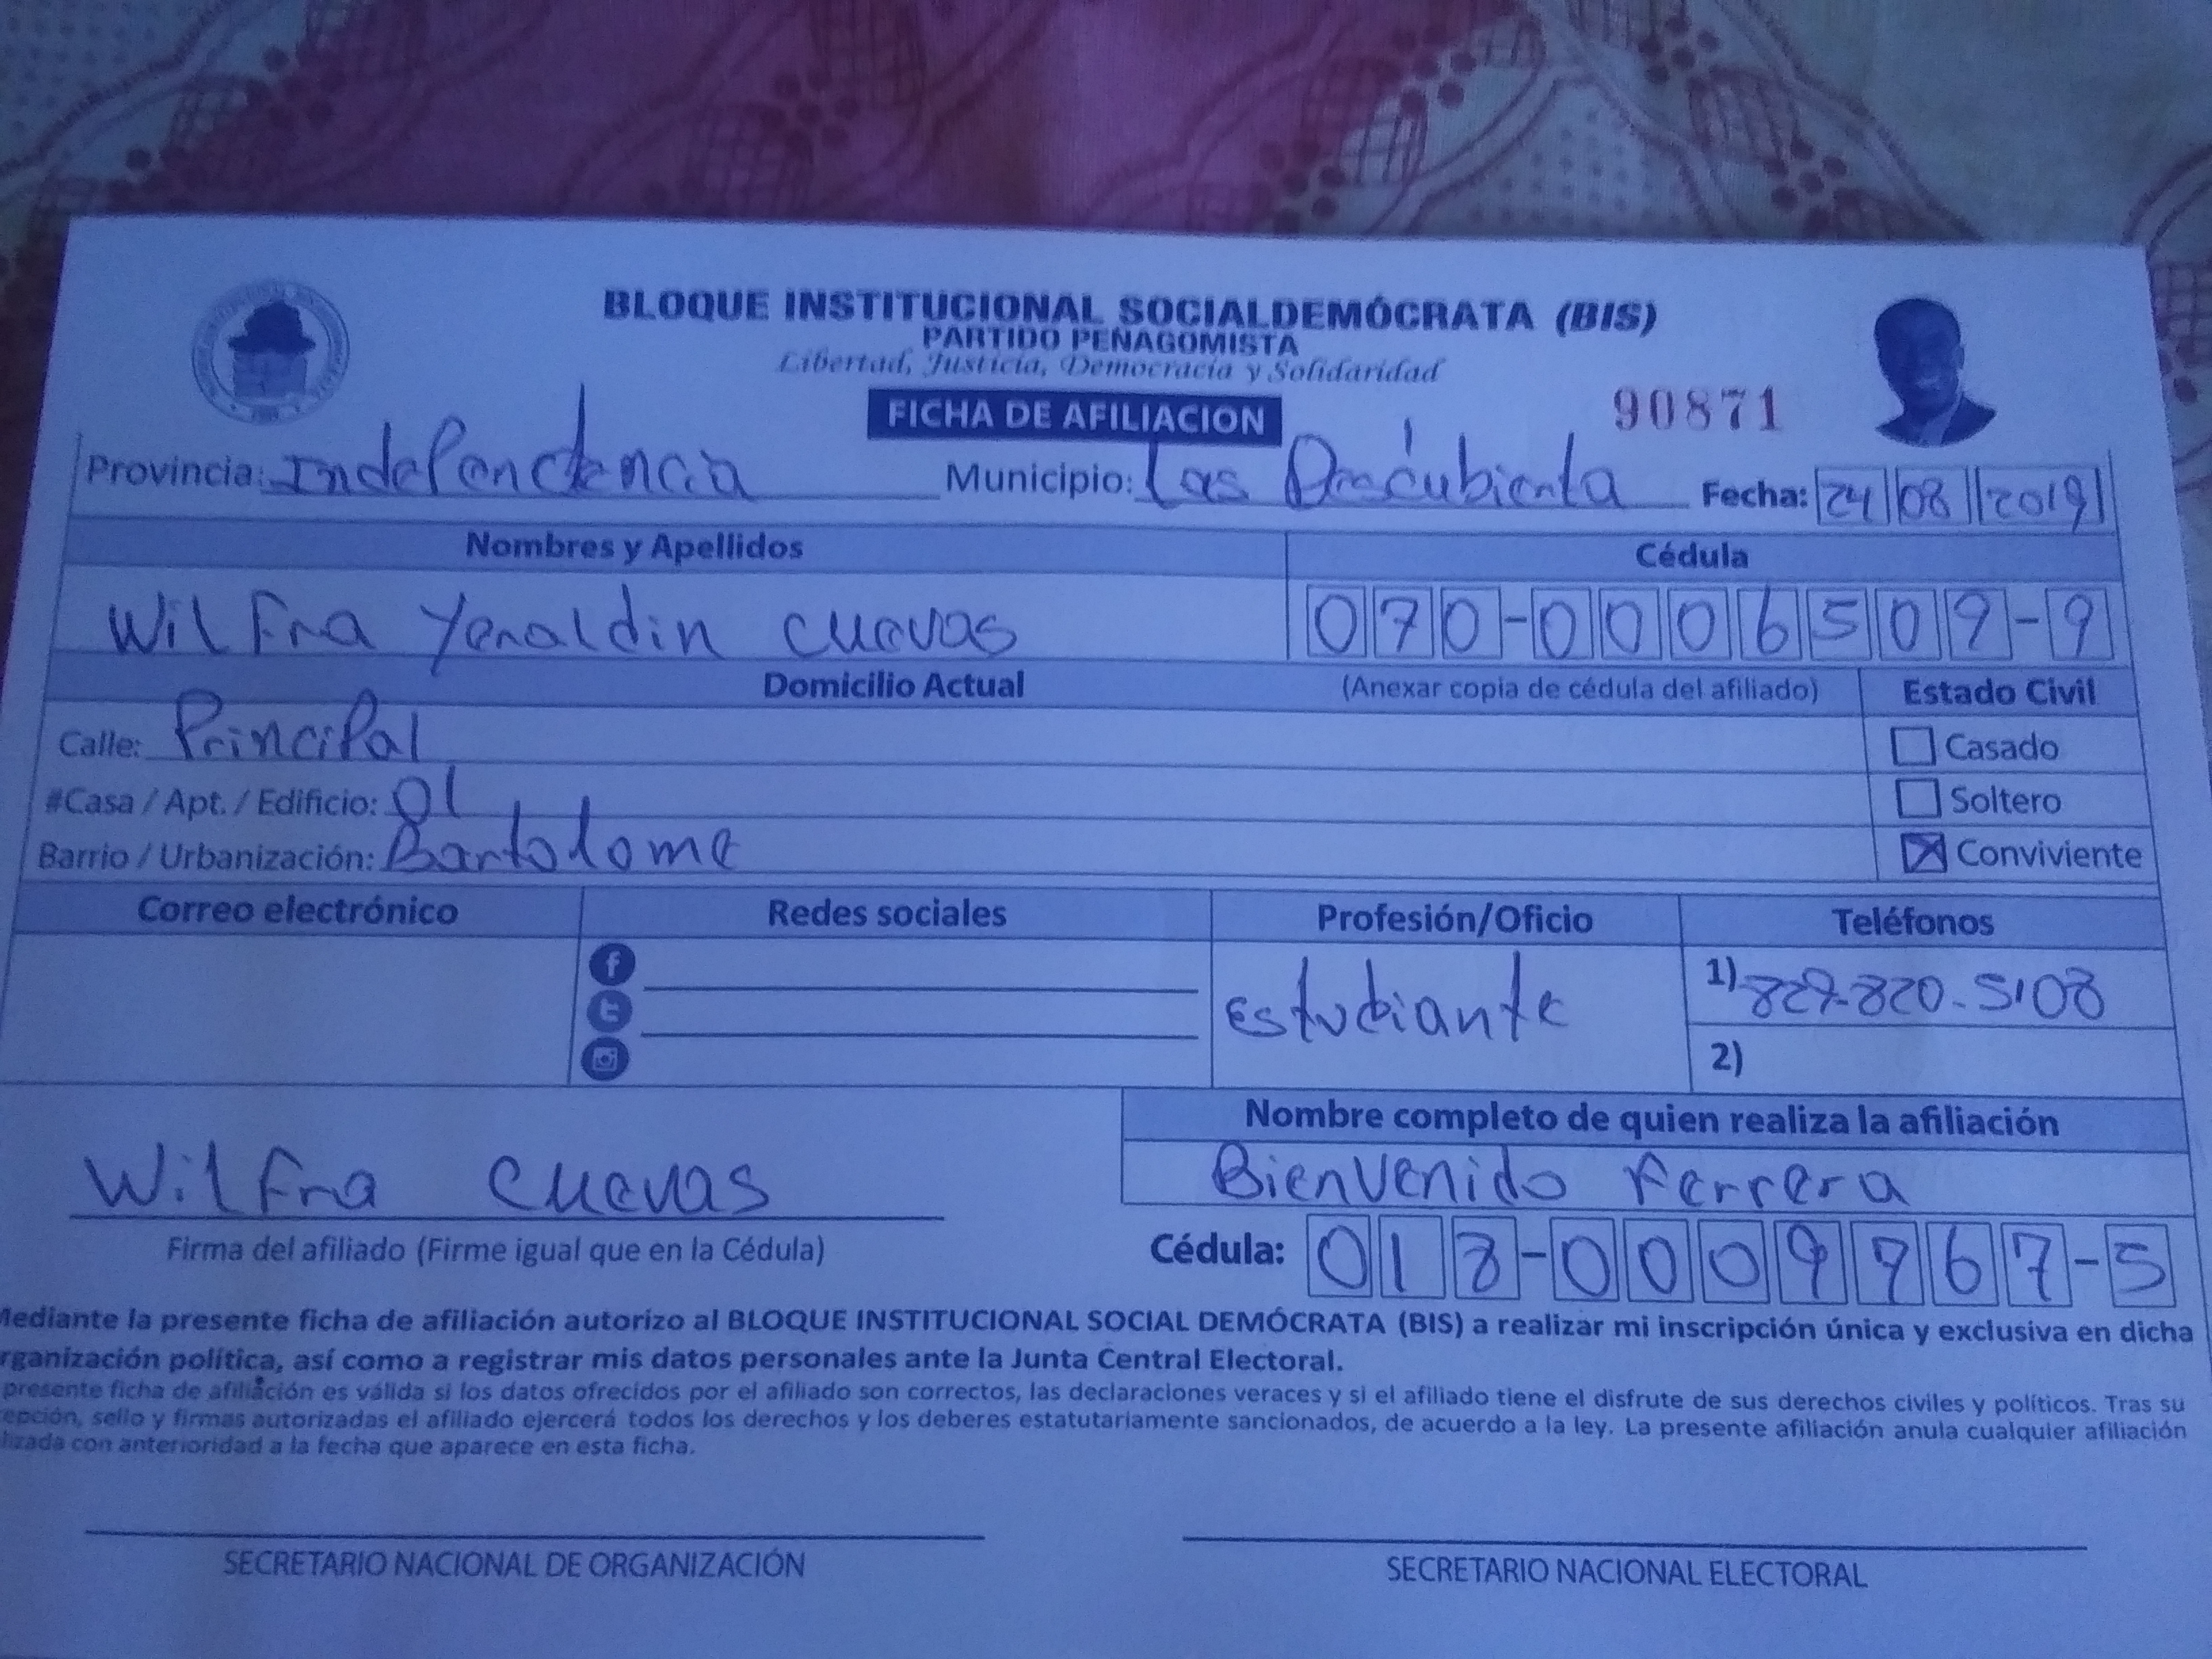 BLOQUE INSTITUCIONAL SOCIALDEMÓCRATA (BIS)
PARTIDO PEÑAGOMISTA
Libertad, Justicia, Democracia y Solidaridad
FICHA DE AFILIACION
90871
Provincia: Independencia Municipio: Las Descubierta Fecha: 24 08 2019
Nombres y Apellidos Cédula
Wilfra Yenaldin Cuevas 070-0006509-9
Domicilio Actual (Anexar copia de cédula del afiliado) Estado Civil
Calle: Principal Casado
#Casa / Apt. / Edificio: 01 Soltero
Barrio / Urbanización: Bartolome Conviviente
Correo electrónico Redes sociales Profesión/Oficio Teléfonos
Estudiante 1) 829-820-5108
2)
Nombre completo de quien realiza la afiliación
Wilfra Cuevas Bienvenido Ferrera
Firma del afiliado (Firme igual que en la Cédula) Cédula: 018-0009767-5
Mediante la presente ficha de afiliación autorizo al BLOQUE INSTITUCIONAL SOCIAL DEMÓCRATA (BIS) a realizar mi inscripción única y exclusiva en dicha
rganización política, así como a registrar mis datos personales ante la Junta Central Electoral.
presente ficha de afiliación es válida si los datos ofrecidos por el afiliado son correctos, las declaraciones veraces y si el afiliado tiene el disfrute de sus derechos civiles y políticos. Tras su
epción, sello y firmas autorizadas el afiliado ejercerá todos los derechos y los deberes estatutariamente sancionados, de acuerdo a la ley. La presente afiliación anula cualquier afiliación
lizada con anterioridad a la fecha que aparece en esta ficha.
SECRETARIO NACIONAL DE ORGANIZACIÓN SECRETARIO NACIONAL ELECTORAL